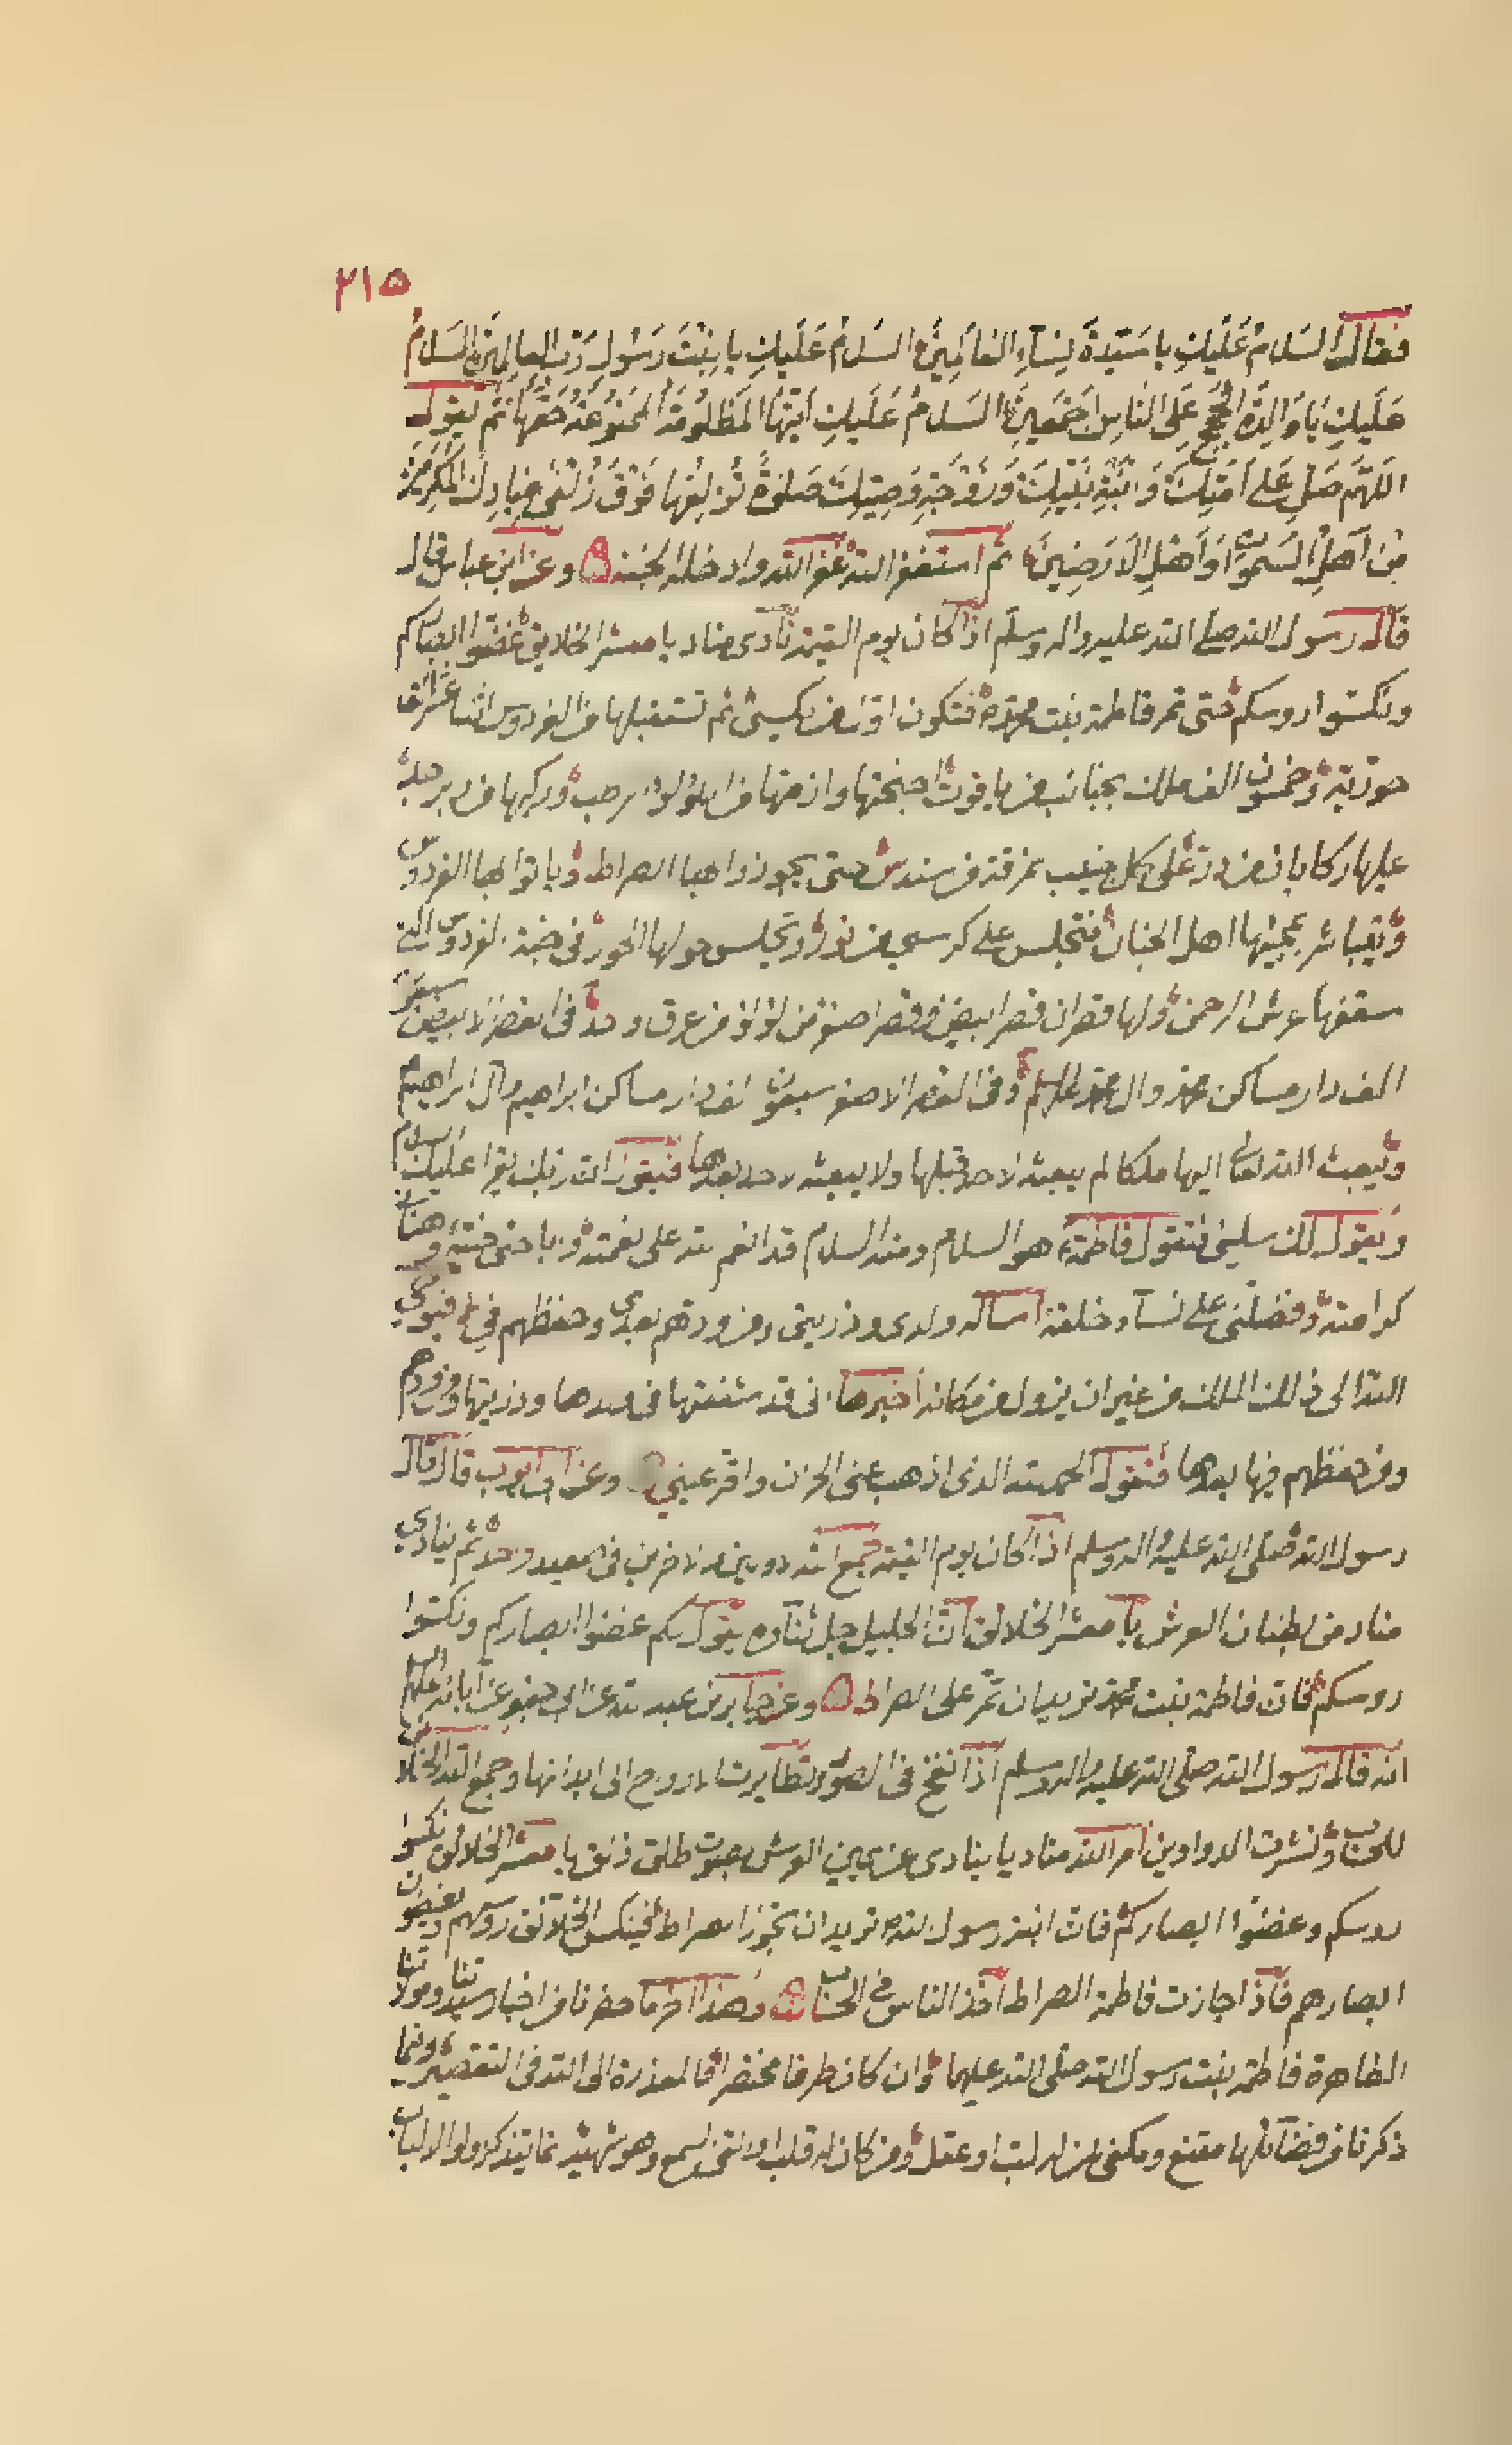 ٢١٥
فقال السَلامُ عَلَيكِ يا سَيّدةَ نِسآءِ العالَمِينَ السَلامُ عَلَيكِ يا بِنتَ رَسُولِ رَبّ العالمِينَ السَلامُ
عَلَيكِ يَا وَالِدَةَ الحُجَجِ عَلَى الناسِ اَجمَعِينَ السَلامُ عَلَيكِ اَيّتُهَا المَظلُومَةُ المَمنُوعَةُ حَقّهَا ثم يقول
اللهمّ صَلّ عَلى اَمَتِكَ وَابنَةِ نَبيّكَ وَزَوجَةِ وَصيّ نَبِيّكَ صَلوةً تُزلِفُها فَوقَ زُلفى عِبادِكَ المُكَرّمِينَ
مِن اَهلِ السَموات وَاَهلِ الاَرَضِينَ ثم استغفر الله غفر الله له وادخله الجنة وعن ابن عباس قال
قال رسول الله صلى الله عليه واله وسلم اذا كان يوم القيمة نادى مناد يا معشر الخلايق غضوا ابصاركم
ونكسوا روسكم حتى تمر فاطمة بنت محمد فتكون اول من يكسى ثم تستقبلها من الفردوس اثنا عشر الف
حورية وخمسون الف ملك على نجائب من ياقوت اجنحتها وازمتها من اللؤلؤ الرطب وركبها من زبرجد
عليها ركائب من در على كل نجيب نمرقة من سندس حتى يجوزوا بها الصراط ويأتوا بها الفردوس
ويتباشر بمجيئها اهل الجنان فتجلس على كرسي من نور وتجلس حولها الحور في جنة الفردوس التي
سقفها عرش الرحمن ولها قصران قصر ابيض وقصر اصفر من لؤلؤ من عرق واحد في القصر الابيض سبعون
الف دار مساكن محمد وال محمد عليهم السلام وفي القصر الاصفر سبعون الف دار مساكن ابراهيم وآل ابراهيم
ويبعث الله تعالى اليها ملكا لم يبعث لاحد قبلها ولا يبعث لاحد بعدها فيقول ان ربك يقرا عليك السلام
ويقول لك سليني فتقول فاطمة هو السلام ومنه السلام قد اتم على نعمته واباحني جنته وهناني
كرامته وفضلني على نسآء خلقه اساله ولدي وذريتي ومن ودهم بعدي وحفظهم في فيوحي
الله الى ذلك الملك من غير ان يزول من مكانه اخبرها اني قد شفعتها في ولدها وذريتها ومن ودهم
ومن حفظهم فيها بعدها فتقول الحمد لله الذي اذهب عني الحزن واقر عيني وعن ابي ايوب قال قال
رسول الله صلى الله عليه واله وسلم اذا كان يوم القيمة جمع الله الاولين والاخرين في صعيد واحد ثم ينادي
مناد من بطنان العرش يا معشر الخلائق ان الجليل جل ثنآوه يقول لكم غضوا ابصاركم ونكسوا
روسكم فان فاطمة بنت محمد تريد ان تمر على الصراط وعن جابر بن عبد الله عن ابي جعفر عن ابائه عليهم السلم
انه قال رسول الله صلى الله عليه واله وسلم اذا نفخ في الصور وتطايرت الارواح الى ابدانها وجمع الله الخلايق
للحساب ونشرت الدواوين امر الله مناديا ينادي عن يمين العرش بصوت طلق ذلق يا معشر الخلائق نكسوا
روسكم وغضوا ابصاركم فان ابنة رسول الله تريد ان تجوز الصراط فينكس الخلائق روسهم ويغضون
ابصارهم فاذا جازت فاطمة الصراط اخذ الناس في الحساب وهذا اخر ما حضرنا من اخبار سيدتنا ومولاتنا
الطاهرة فاطمة بنت رسول الله صلى الله عليهما وان كان طرفا مختصرا فالمعذرة الى الله في التقصير وفيما
ذكرنا من فضآئلها مقنع ومكفى لمن له لب او عقل ومن كان له قلب او القى السمع وهو شهيد انما يتذكر اولو الالباب